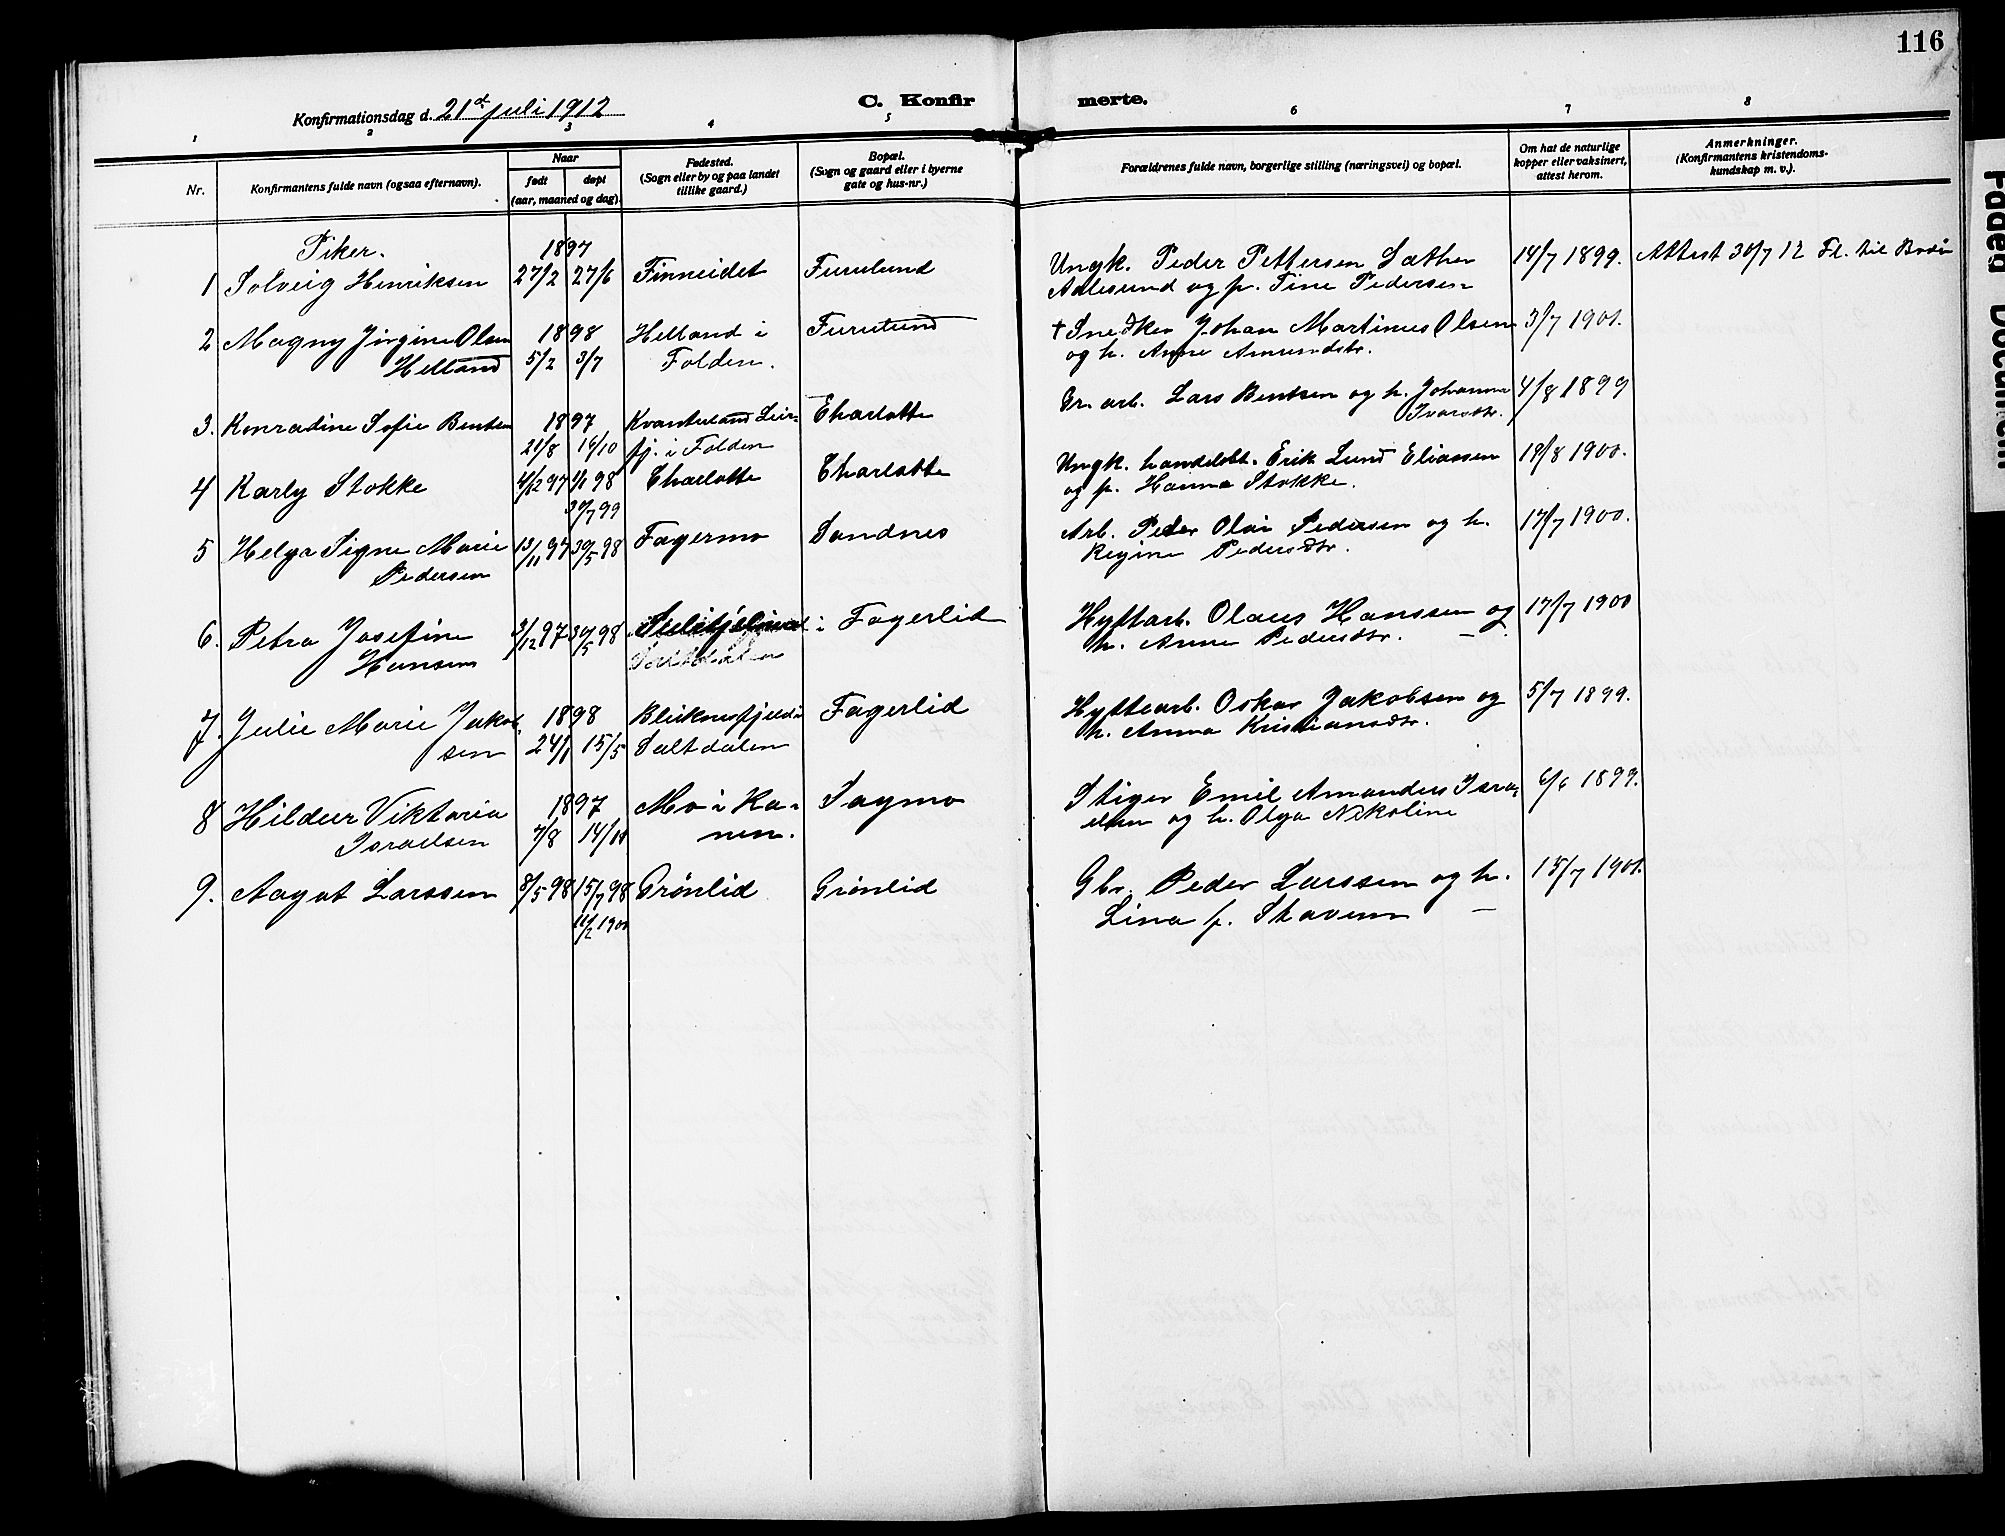 116
Konfirmationsdag d. 21d juli 1912
C. Konfir merte.
1 2 3 4 5 6 7 8
Nr.
Konfirmantens fulde navn (ogsaa efternavn).
Naar
født døpt
(aar, maaned og dag)
Fødested.
(Sogn eller by og paa landet
tillike gaard.)
Bopæl.
(Sogn og gaard eller i byerne
gate og hus-nr.)
Forældrenes fulde navn, borgerlige stilling (næringsvei) og bopæl.
Om hat de naturlige
kopper eller vaksinert,
attest herom.
Anmerkninger.
(Konfirmantens kristendoms-
kundskap m. v.).
Piker. 1897
1 Solveig Henriksen 27/2 27/6 Finneidet Furulund Ungk. Peder Pettersen Sæther 14/7 1899. Attest 30/7 12 Fl. til Bodö
Aalesund og p. Tine Pedersen
2 Magny Jörgine Olsen 1898 Helland i Furulund † Snedker Johan Martinus Olsen 3/7 1901.
Helland 5/2 3/7 Folden. og h. Anne Amundsdtr.
3. Konradine Sofie Bentsen 1897 Kvanteland Leir- Charlotte Gr. arb. Lars Bentsen og h. Johanna 4/8 1899
21/8 16/10 fj. i Folden Ivarsdtr.
4 Karly Stokke 4/12 97 1/1 98 Charlotte Charlotte Ungk. handelsbt. Erik Lund Eliassen 18/8 1900.
30/7 99 og p. Hanna Stokke.
5 Helga Signe Marie 13/11 97 30/5 98 Fagermo Sandnes Arb. Peder Olai Pedersen og h. 17/7 1900.
Pedersen Regine Pedersdtr.
6. Petra Josefine 3/12 97 30/5 98 i Fagerlid Hyttarb. Olaus Hanssen og 17/7 1900
Hansen Saltdalen h. Anne Pedersdtr. —
7. Julie Marie Jakob- 1898 Bleiknesfjeld i Fagerlid Hyttearb. Oskar Jakobsen og 5/7 1899.
sen 24/1 15/5 Saltdalen h. Anna Kristiansdtr.
8 Hildur Viktoria 1897 Mo i Ra- Sagmo Stiger Emil Amandus Isra- 6/6 1899.
Israelsen 7/8 14/11 nen. elsen og h. Olga Nikoline
9. Aagot Larssen 8/5 98 15/7 98 Grönlid Grönlid Gbr. Peder Larssen og h. 15/7 1901.
11/2 1900 Lina f. Skavem —
Faded Document